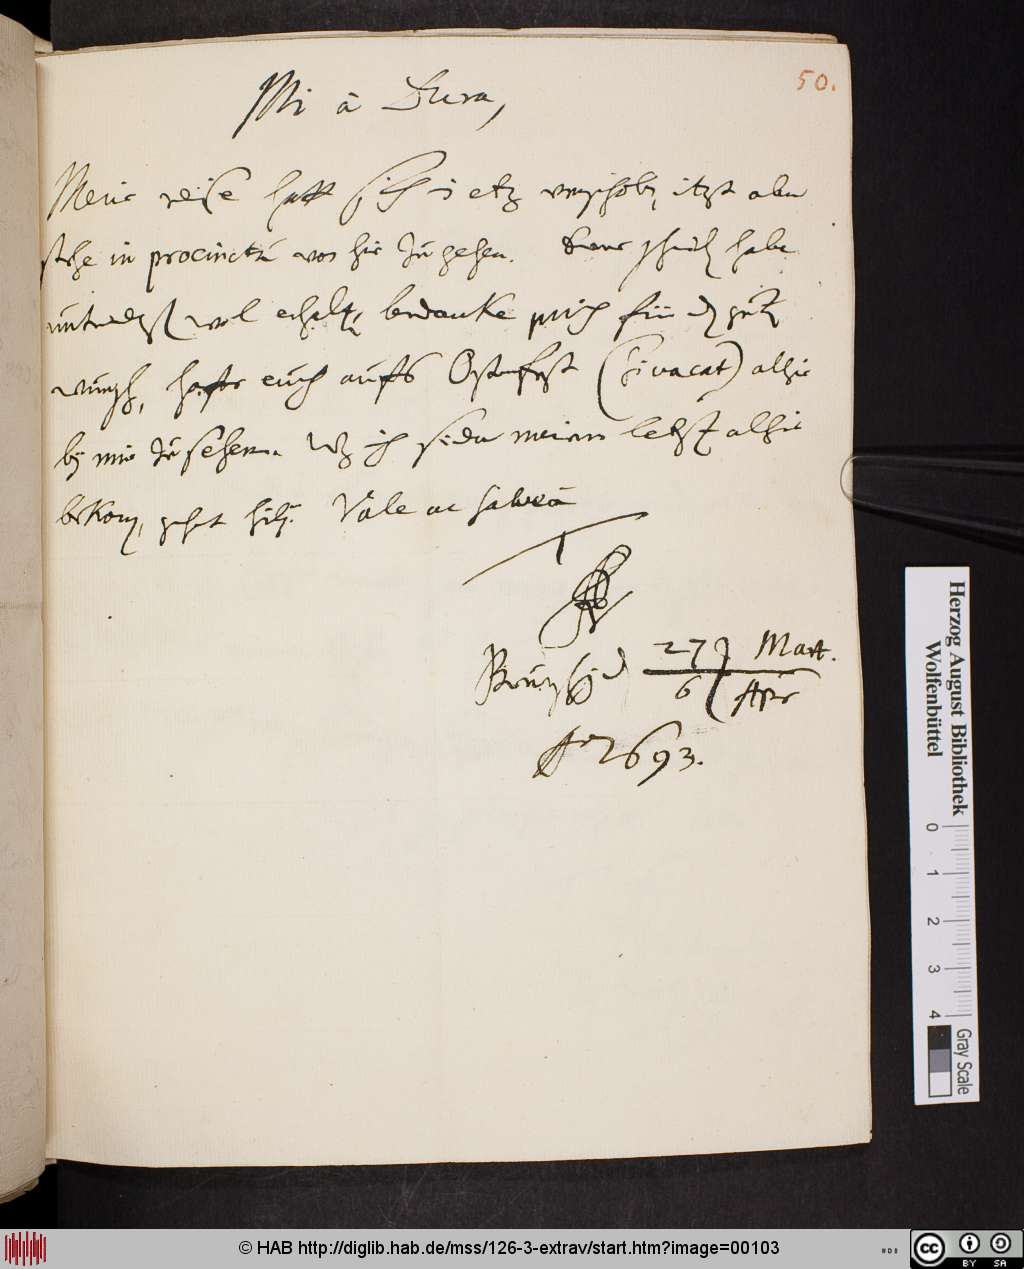 50.
Mi à Sura,
Meine reise hatt sich ietz verschoben itzt aber
stehe in procinctu von hir zu gehen. schreiben habe
unterdeß wol erhalten, bedancke mich für den guten
wunsch, hoffe euch aufs Osterfest (si vacat) alhie
bey mir zu sehen. ich sieder meiner letzt alhie
bekom, gehet hiby. Vale ac salve à
T
Brunschweig d 27 Mart.
6 Apr
Ao 1693.
Herzog August Bibliothek
Wolfenbüttel
0 1 2 3 4
Gray Scale
© HAB http://diglib.hab.de/mss/126-3-extrav/start.htm?image=00103
cc BY SA